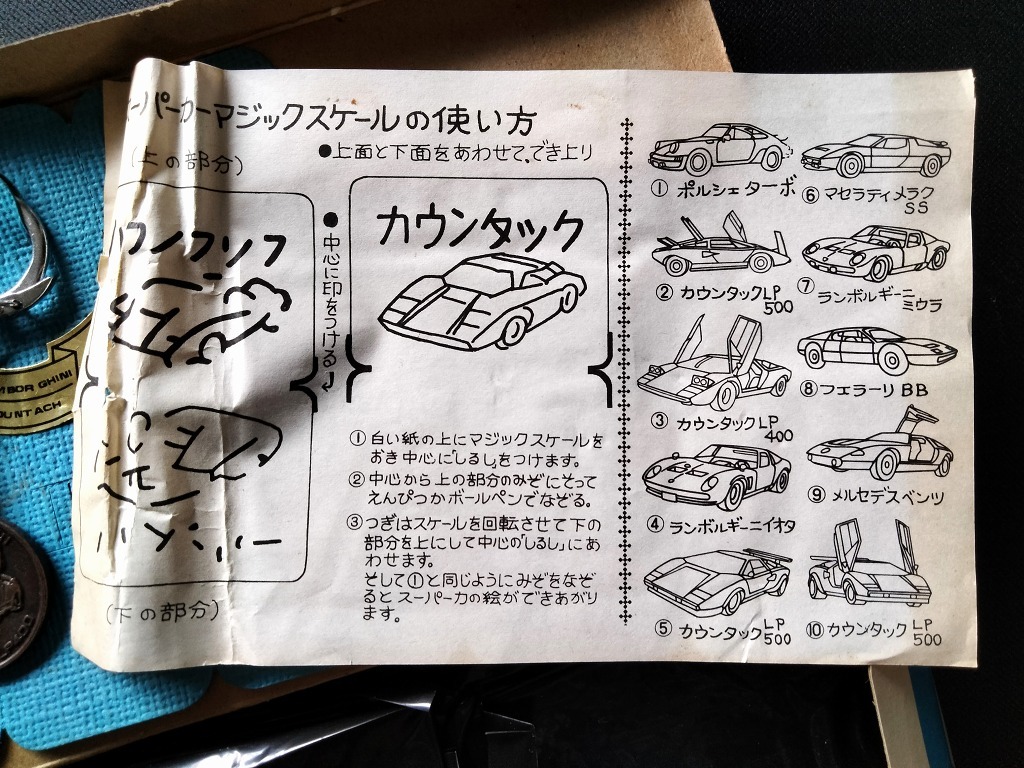 ーパーカーマジックスケールの使い方
(上の部分)
●上面と下面をあわせて、でき上り
●中心に印をつける
カウンタック
(下の部分)
①白い紙の上にマジックスケールを
おき中心に「しるし」をつけます。
②中心から上の部分のみぞにそって
えんぴつかボールペンでなぞる。
③つぎはスケールを回転させて下の
部分を上にして中心の「しるし」にあ
わせます。
そして①と同じようにみぞをなぞ
るとスーパーカの絵ができあがり
ます。
①ポルシェターボ
②カウンタックLP
500
③カウンタックLP
400
④ランボルギーニイオタ
⑤カウンタックLP
500
⑥マセラティメラク
SS
⑦ランボルギーニ
ミウラ
⑧フェラーリBB
⑨メルセデスベンツ
⑩カウンタックLP
500
MBORGHINI
OUNTACH